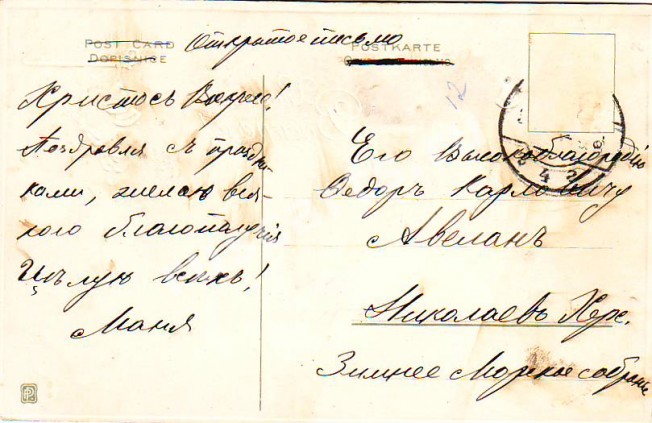 POST CARD
DOPISNICE
Открытое письмо
POSTKARTE
12
Христосъ Воскресе!
Поздравля съ праздни-
ками, желаю вся-
кого благополучія
Цѣлую всѣхъ!
Маня
Его Высокоблагородію
Федоръ Карловичу
Авеланъ
Николаевъ Херс.
Зимнее Морское собрание